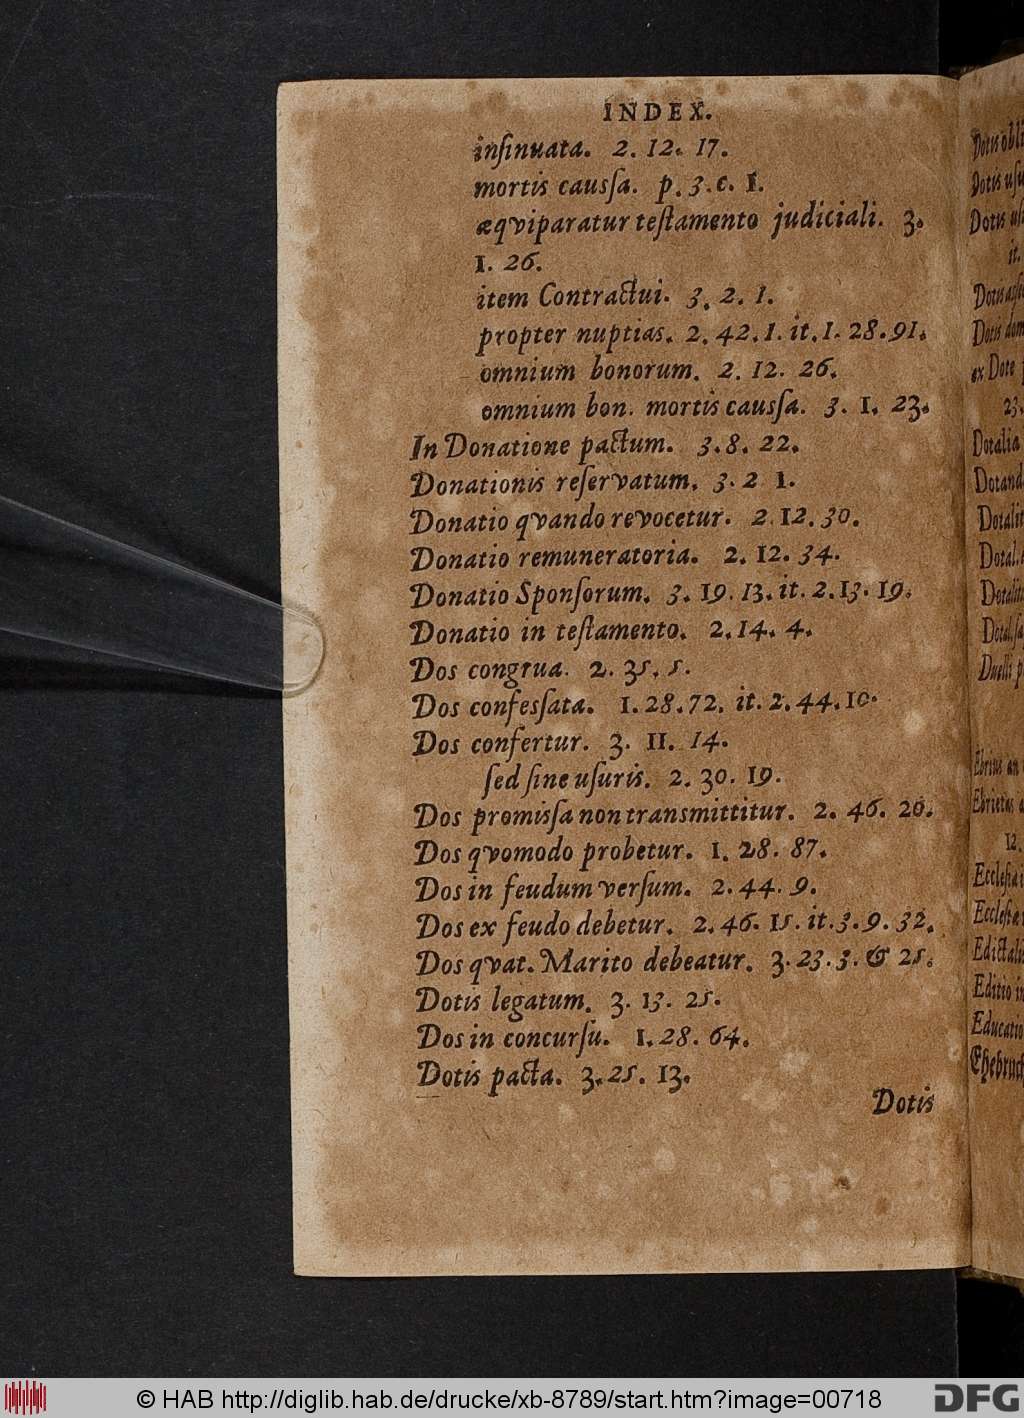 INDEX.
inſinuata. 2. 12. 17.
mortis cauſſa. p. 3. c. 1.
æqviparatur teſtamento judiciali. 3.
1. 26.
item Contractui. 3. 2. 1.
propter nuptias. 2. 42. 1. it. 1. 28. 91.
omnium bonorum. 2. 12. 26.
omnium bon. mortis cauſſa. 3. 1. 23.
In Donatione pactum. 3. 8. 22.
Donationis reſervatum. 3. 2 1.
Donatio qvando revocetur. 2. 12. 30.
Donatio remuneratoria. 2. 12. 34.
Donatio Sponſorum. 3. 19. 13. it. 2. 13. 19.
Donatio in teſtamento. 2. 14. 4.
Dos congrua. 2. 35. 5.
Dos confeſſata. 1. 28. 72. it. 2. 44. 10.
Dos confertur. 3. 11. 14.
ſed ſine uſuris. 2. 30. 19.
Dos promiſſa non transmittitur. 2. 46. 20.
Dos qvomodo probetur. 1. 28. 87.
Dos in feudum verſum. 2. 44. 9.
Dos ex feudo debetur. 2. 46. 15. it. 3. 9. 32.
Dos qvat. Marito debeatur. 3. 23. 3. & 25.
Dotis legatum. 3. 13. 25.
Dos in concurſu. 1. 28. 64.
Dotis pacta. 3. 25. 13.
Dotis
Dotis
Dotis
Dotis
it.
Dotis
Dotis
ex Dote
23.
Dotalia
Dotal.
12.
Editio
© HAB http://diglib.hab.de/drucke/xb-8789/start.htm?image=00718
DFG